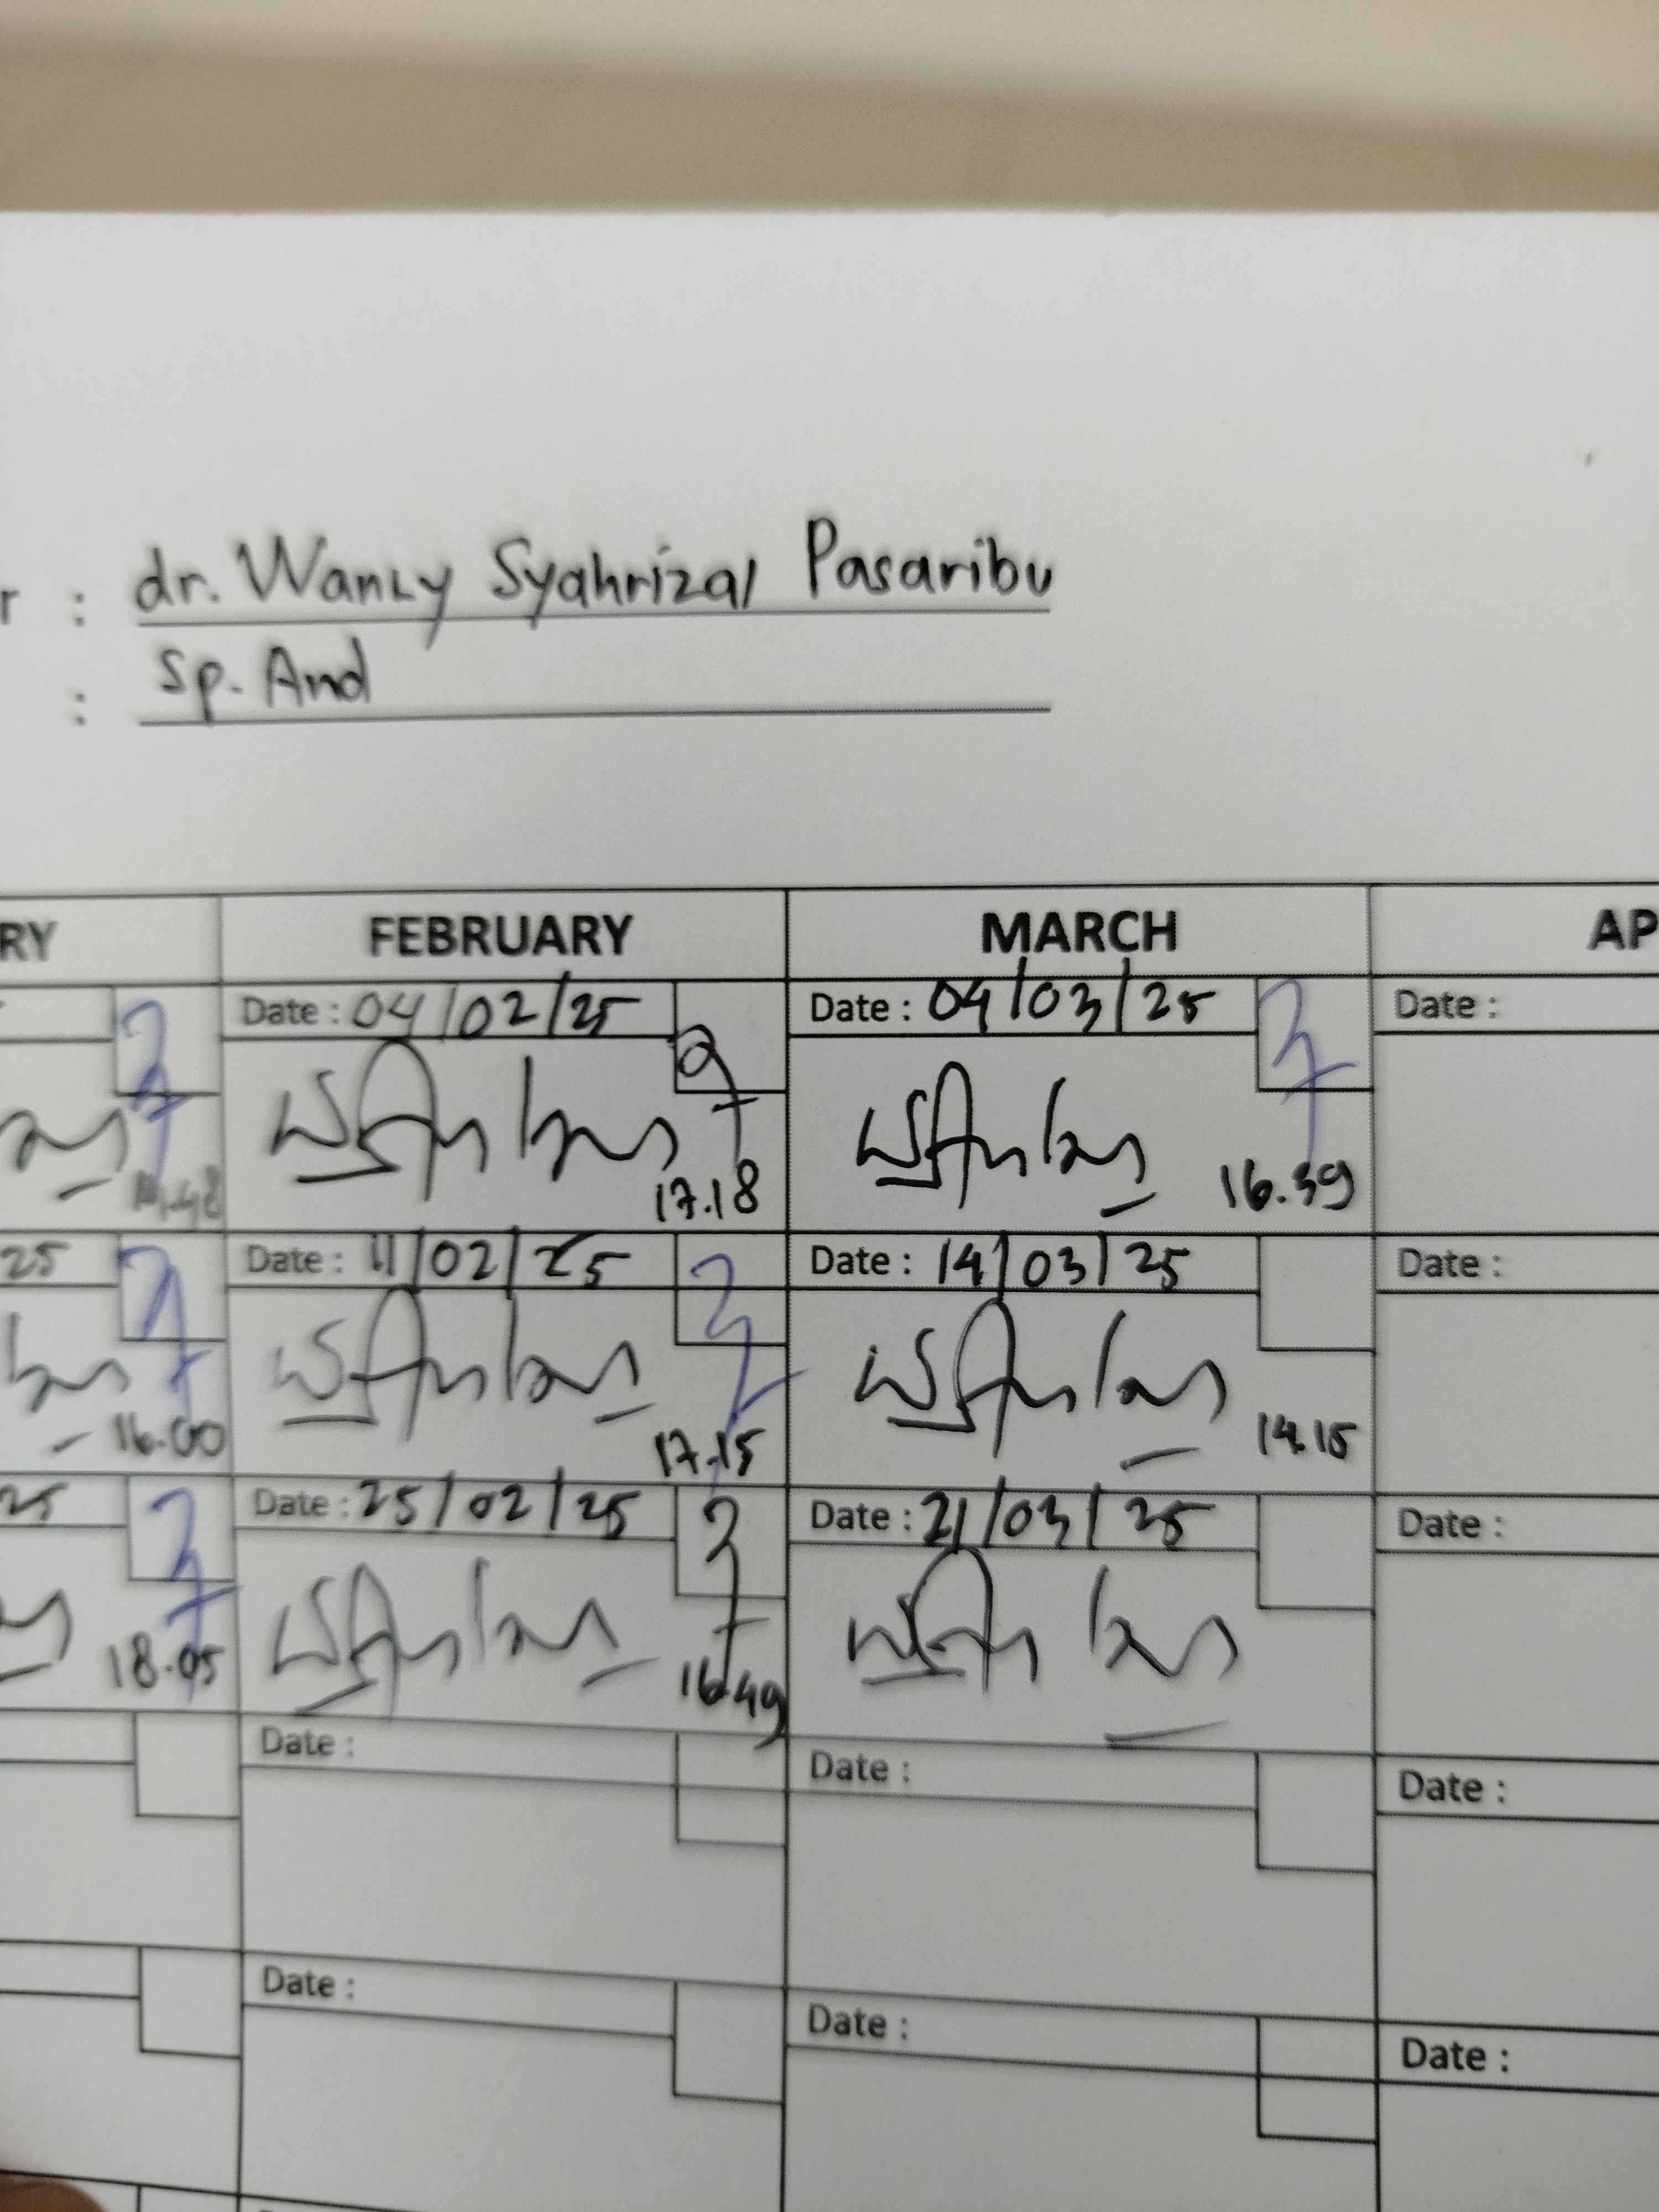 r : dr. Wanly Syahrizal Pasaribu
: Sp. And
RY FEBRUARY MARCH AP
Date : 04/02/25 Date : 04/03/25 Date :
17.18 16.39
25 Date : 11/02/25 Date : 14/03/25 Date :
16.00 17.15 14.15
25 Date : 25/02/25 Date : 21/03/25 Date :
18.05 16.49
Date : Date : Date :
Date : Date : Date :